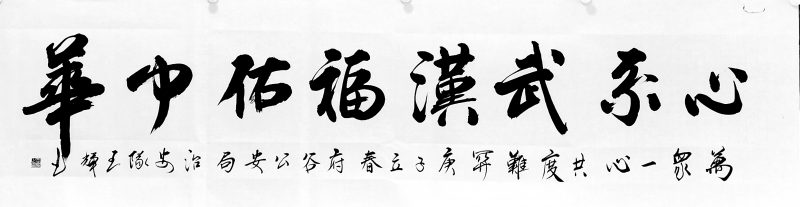 心系武漢福佑中華
萬眾一心共度難關庚子立春府谷公安局治安隊王輝书